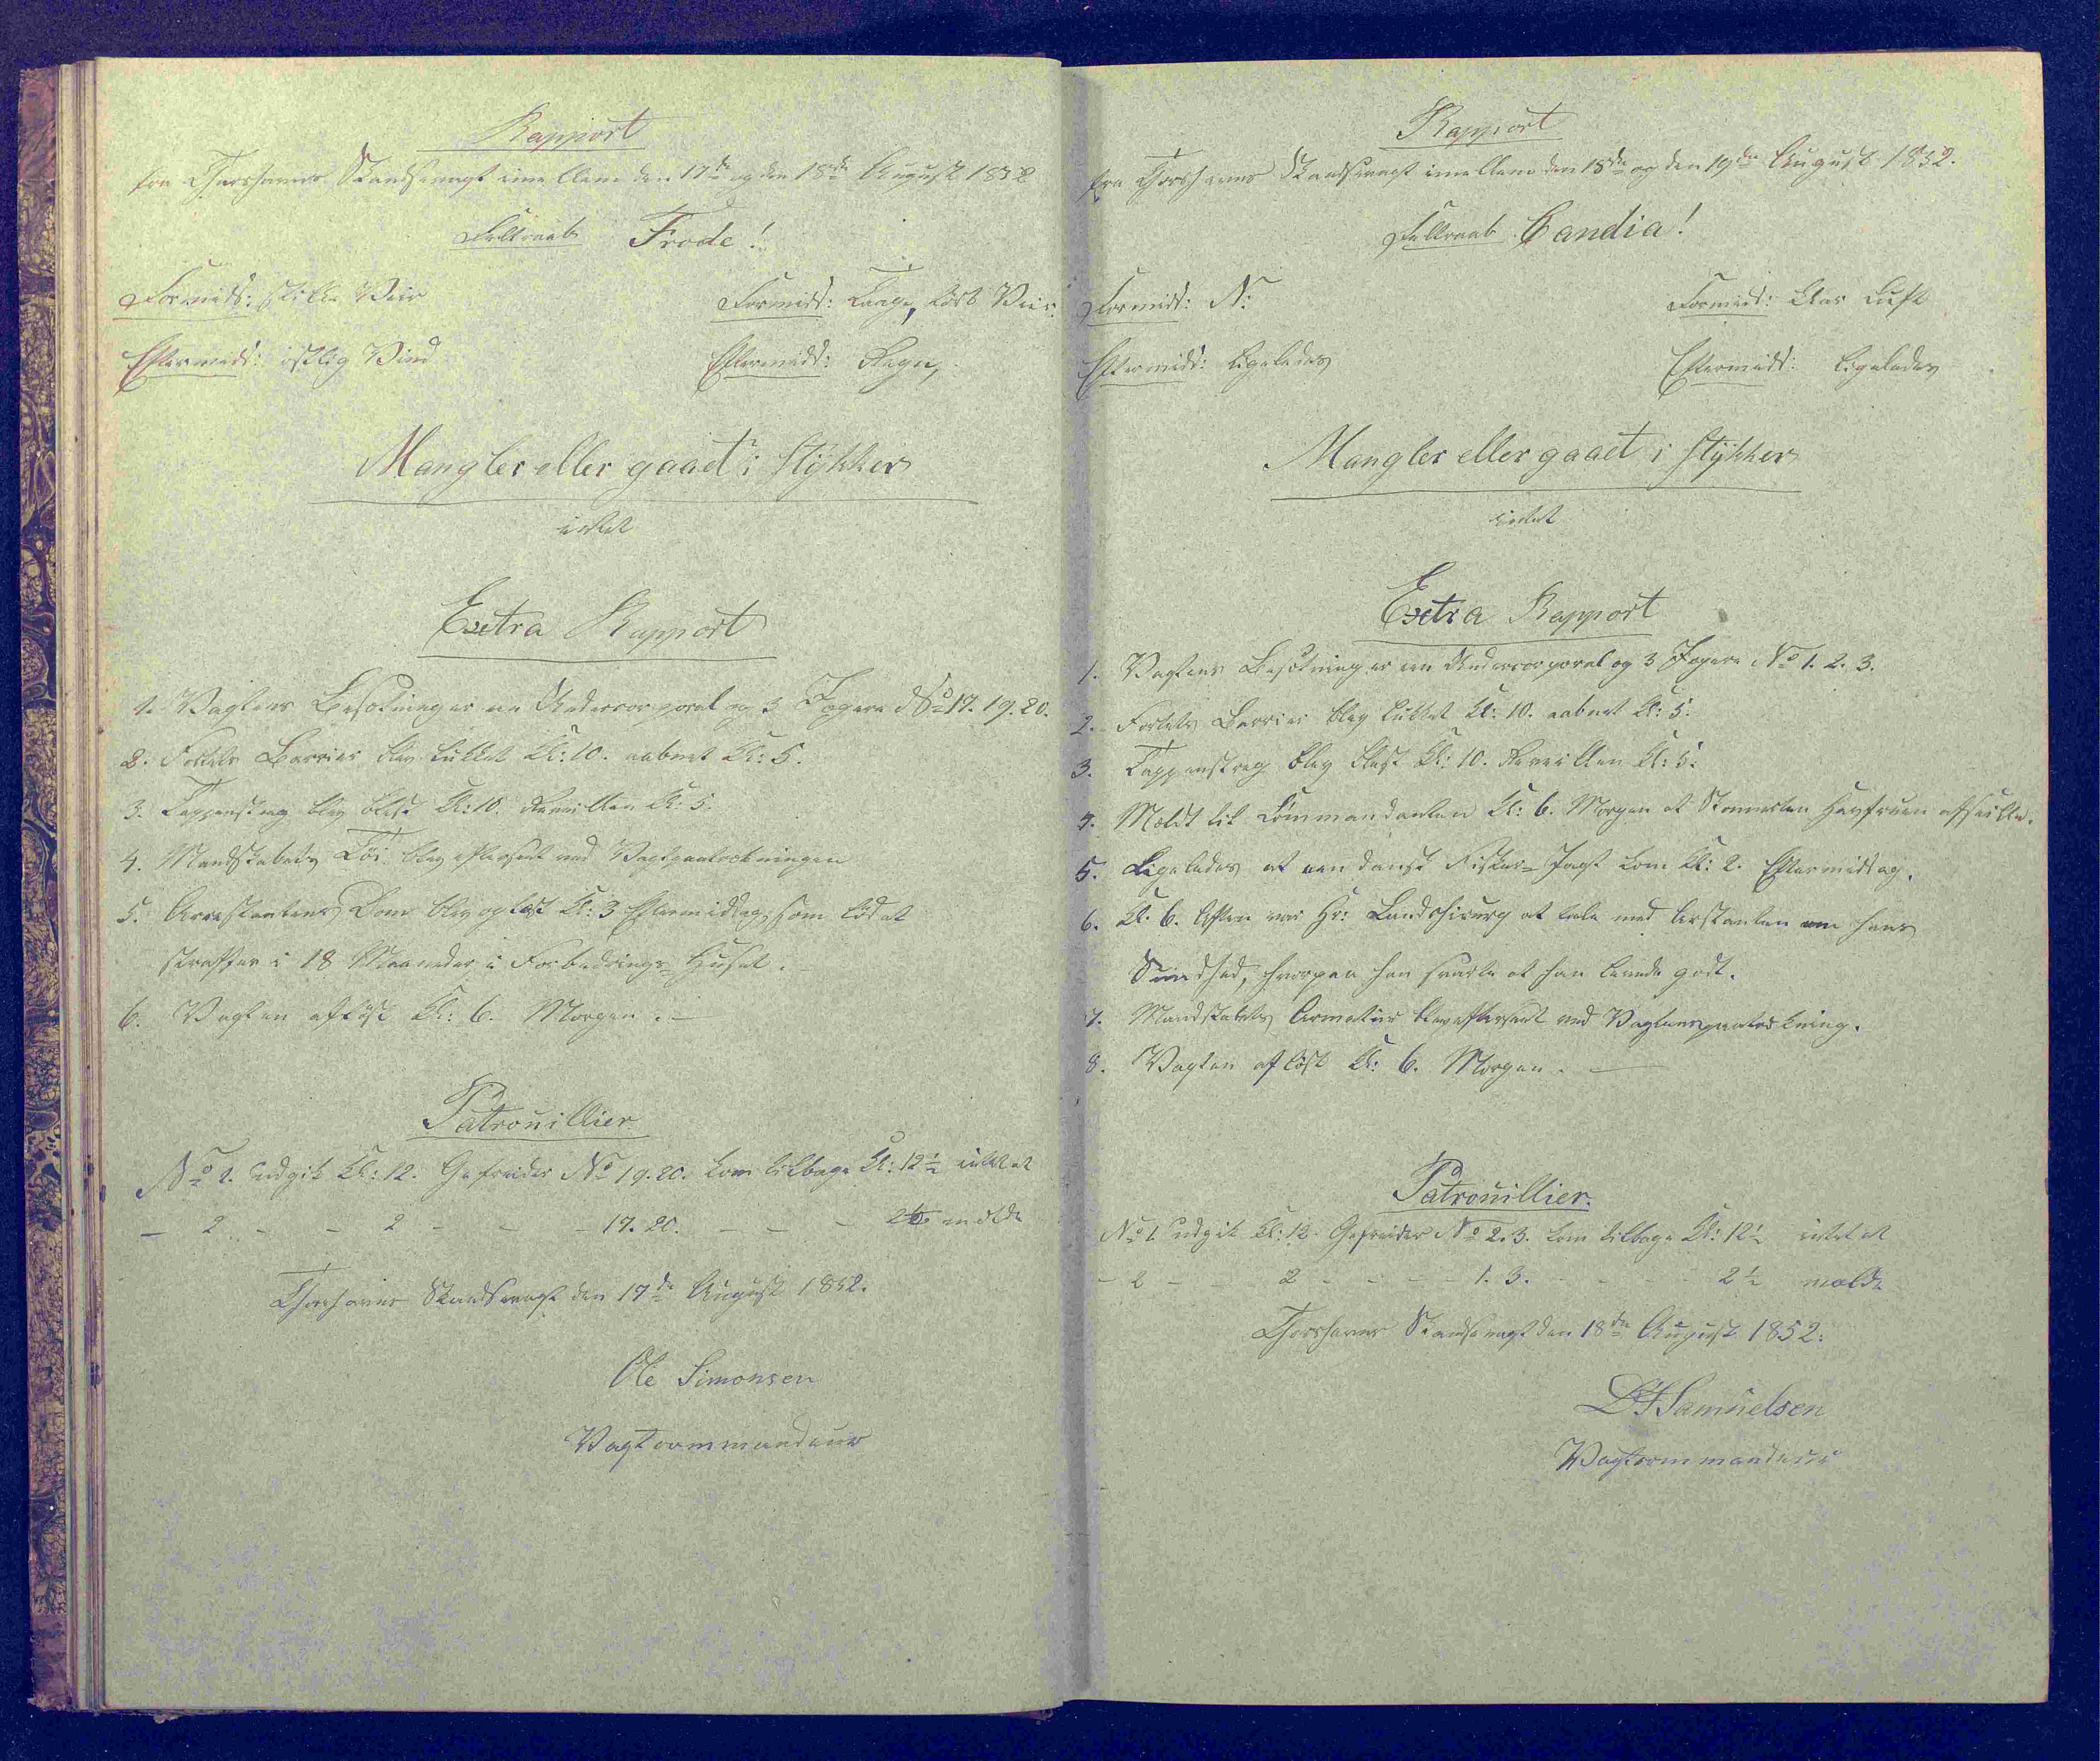 Rapport
fra Thorshavns Skandsevagt imellem den 17de og den 18de August 1852
Feltraab Frode!
Formidd: stille Veir
Formidd: Taage, tört Veir.
Eftermidd: östlig Vind
Eftermidd: Regn,
Mangler eller gaaet i Stÿkker
intet
Extra Rapport
1. Vagtens Besætning er en Undercorporal og 3 Jægere No 17. 19. 20.
2. Fortets Barrier blev lukket Kl: 10. aabnet Kl: 5.
3. Tappenstreg blev blæst Kl: 10. Reveillen Kl: 5.
4. Mandskabets Töi blev efterseet ved Vagtpaatrækningen
5. Arrestantens Dom blev oplæst Kl: 3 Eftermiddag, som löd at
straffes i 18 Maaneder i Forbedrings-Huset.
6. Vagten aflöst Kl: 6. Morgen. —
Patrouillier
No 1. udgik Kl: 12. Gefreider No 19. 20. kom tilbage Kl: 12½ intet at
— 2 - - 2 - - - 17. 20. - - - 2½ melde
Thorshavns Skandsevagt den 17de August 1852.
Ole Simonsen
Vagtcommandeur
Rapport
fra Thorshavns Skandsevagt imellem den 18de og den 19de August 1852.
Feltraab Candia!
Formidd: N:
Formidd: klar Luft
Eftermidd: ligeledes
Eftermidd: ligeledes
Mangler eller gaaet i Stÿkker
intet
Extra Rapport
1. Vagtens Besætning er en Undercorporal og 3 Jægere No 1. 2. 3.
2. Fortets Barrier blev lukket Kl: 10. aabnet Kl: 5.
3. Tappenstreg blev blæst Kl: 10. Reveillen Kl: 5.
4. Meldt til Commandanten Kl: 6. Morgen at Skonnerten Havfruen afseilte.
5. Ligeledes at een dansk Fisker-Jagt kom Kl: 2. Eftermiddag.
6. Kl: 6. Aften var Hr: Landchirurg at tale med Arestanten om hans
Sundhed, hvorpaa han svarte at han levede godt.
7. Mandskabets Armatur blev efterseet ved Vagtens paatrækning.
8. Vagten aflöst Kl: 6. Morgen. —
Patrouillier.
No 1 udgik Kl: 12 Gefreider No 2. 3. kom tilbage Kl: 12½ intet at
- 2 - - 2 - - - - 1. 3. - - - - 2½ melde
Thorshavns Skandsevagt den 18de August 1852:
Samuelsen
Vagtcommandeur